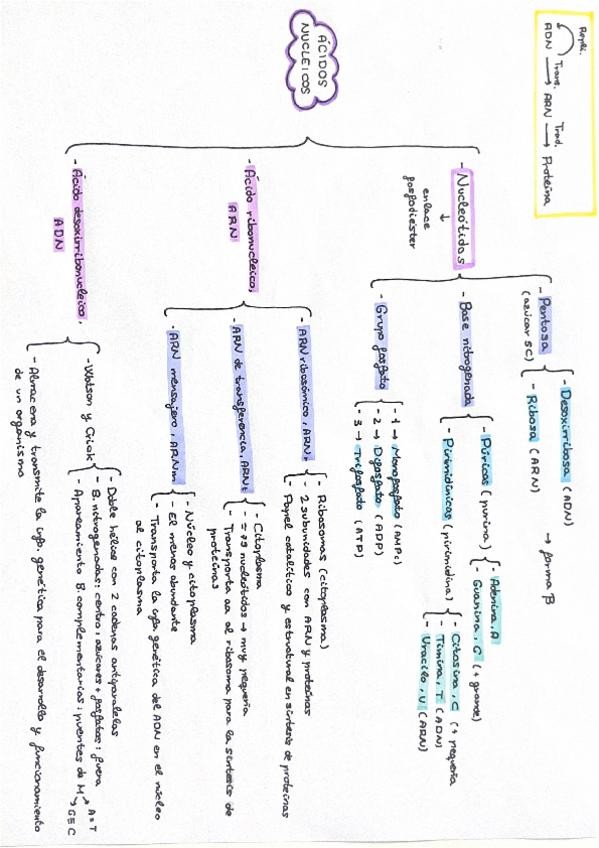 Repli.
Trans. Trad.
ADN → ARN → Proteína
ÁCIDOS
NUCLEICOS
- Nucleótidos
↓
enlace
fosfodiéster
- Pentosa
(azúcar 5C)
- Desoxirribosa (ADN)
→ forma β
- Ribosa (ARN)
- Base nitrogenada
- Púricas (purina)
- Adenina, A
- Guanina, G (+ grande)
- Pirimidínicas (pirimidina)
- Citosina, C (+ pequeña
- Timina, T (ADN)
- Uracilo, U (ARN)
- Grupo fosfato
- 1 → Monofosfato (AMPc)
- 2 → Difosfato (ADP)
- 3 → Trifosfato (ATP)
- Ácido ribonucleico
ARN
- ARN ribosómico, ARNr
- Ribosomas (citoplasma)
- 2 subunidades con ARN y proteínas
- Papel catalítico y estructural en síntesis de proteínas
- ARN de transferencia, ARNt
- Citoplasma
- = 73 nucleótidos → muy pequeña
- Transporta aa al ribosoma para la síntesis de
proteínas
- ARN mensajero, ARNm
- Núcleo y citoplasma
- El menos abundante
- Transporta la info genética del ADN en el núcleo
al citoplasma
- Ácido desoxirribonucleico,
ADN
- Watson y Crick
- Doble hélice con 2 cadenas antiparalelas
- B. nitrogenadas: centro; azúcares + fosfatos: fuera
- Apareamiento B. complementarias: puentes de H
A=T
G≡C
- Almacena y transmite la info. genética para el desarrollo y funcionamiento
de un organismo